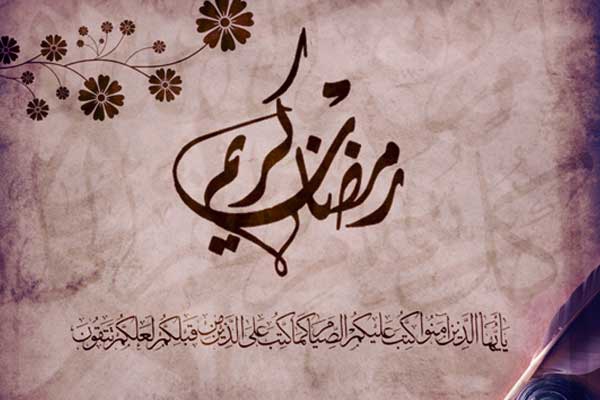 رمضان كريم
يا أيها الذين آمنوا كتب عليكم الصيام كما كتب على الذين من قبلكم لعلكم تتقون